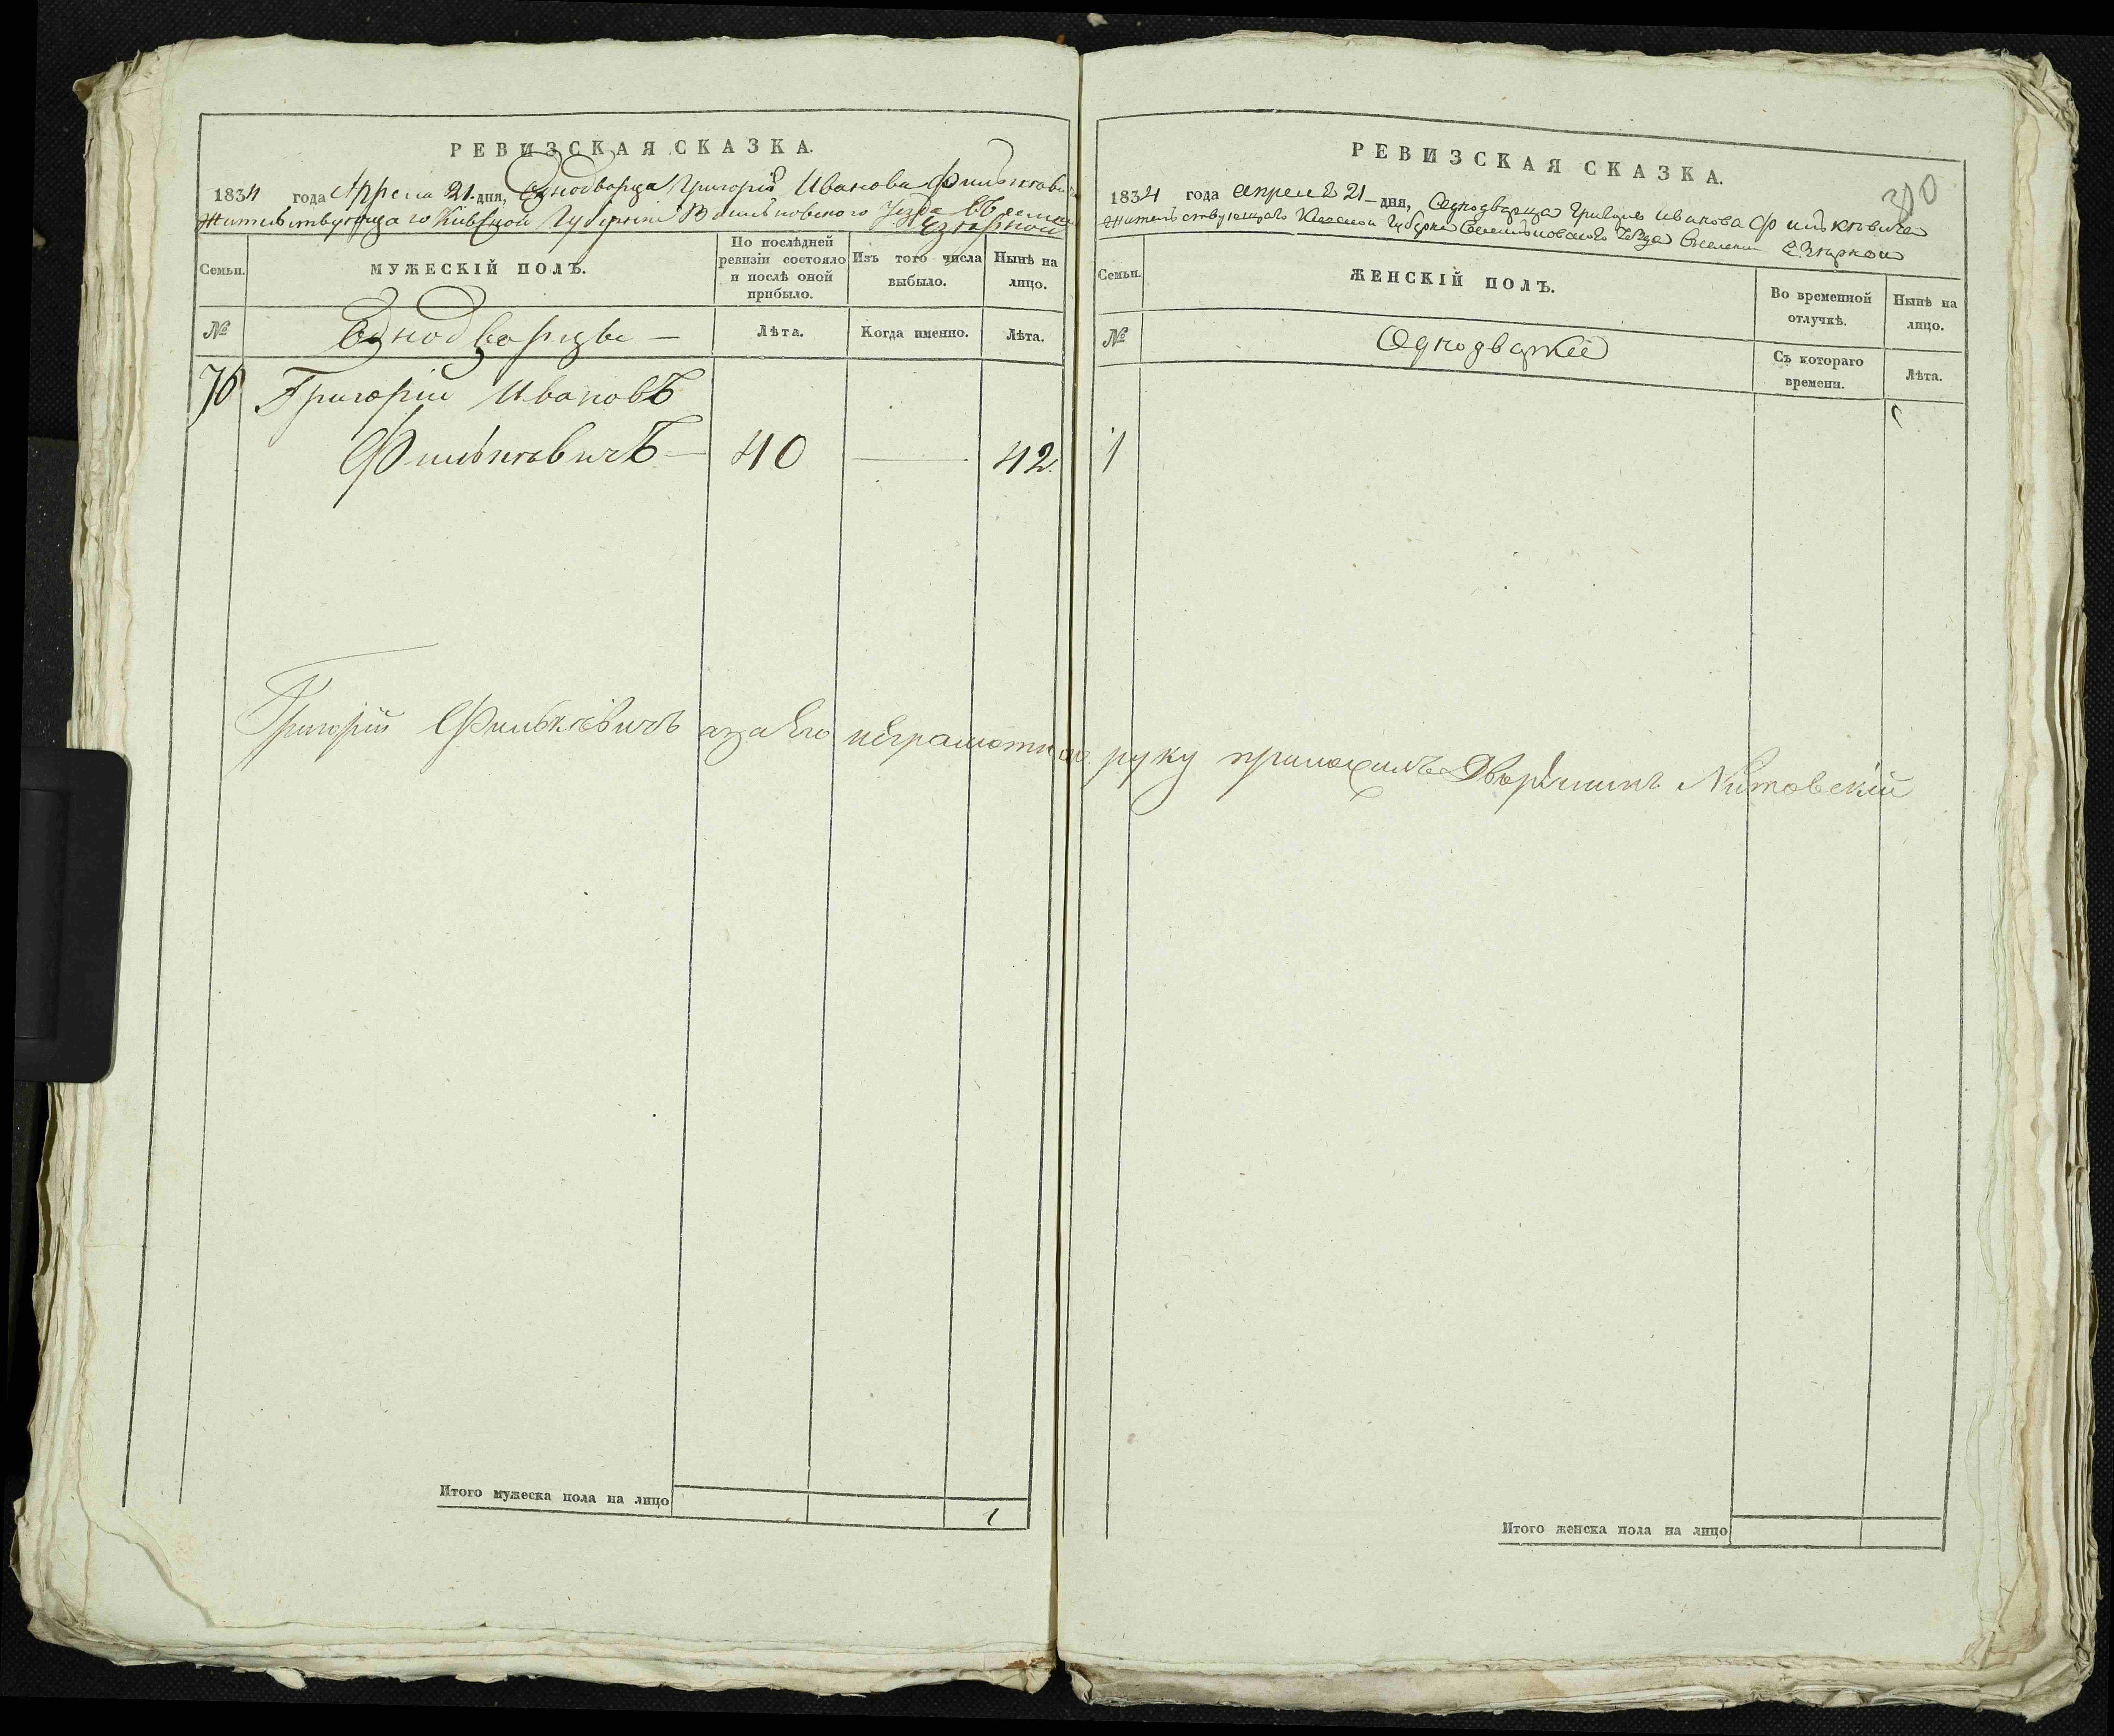 РЕВИЗСКАЯ СКАЗКА.
1834 года Апреля 21 дня, Однодворца Григорія Иванова Филькевича
Жительствующаго Кіевской Губерніи Васильковскаго Уезда въ селеніи
Езюрной
Семьи.
МУЖЕСКІЙ ПОЛЪ.
По послѣдней ревизіи состояло и послѣ оной прибыло.
Изъ того числа выбыло.
Нынѣ на лицо.
№
Однодворцы —
Лѣта.
Когда именно.
Лѣта.
76 Григорій Ивановъ
Филькевичъ — 40 — 42.
Григорій Филькевичъ а за его неграмотнаго руку приложилъ Дворянинъ
Итого мужеска пола на лицо 1
310
РЕВИЗСКАЯ СКАЗКА.
1834 года апреля 21 дня, Однодворца Григорія Иванова Филькевича
Жительствующаго Кіевской Губерніи Васильковскаго Уезда въ селеніи
Езюрной
Семьи.
ЖЕНСКІЙ ПОЛЪ.
Во временной отлучкѣ.
Нынѣ на лицо.
№
Однодворки
Съ котораго времени.
Лѣта.
1
Итого женска пола на лицо